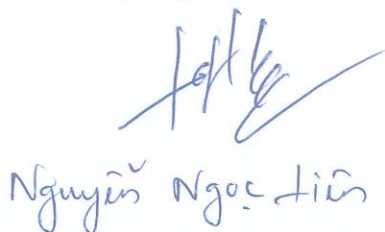 Nguyễn Ngọc Tiến